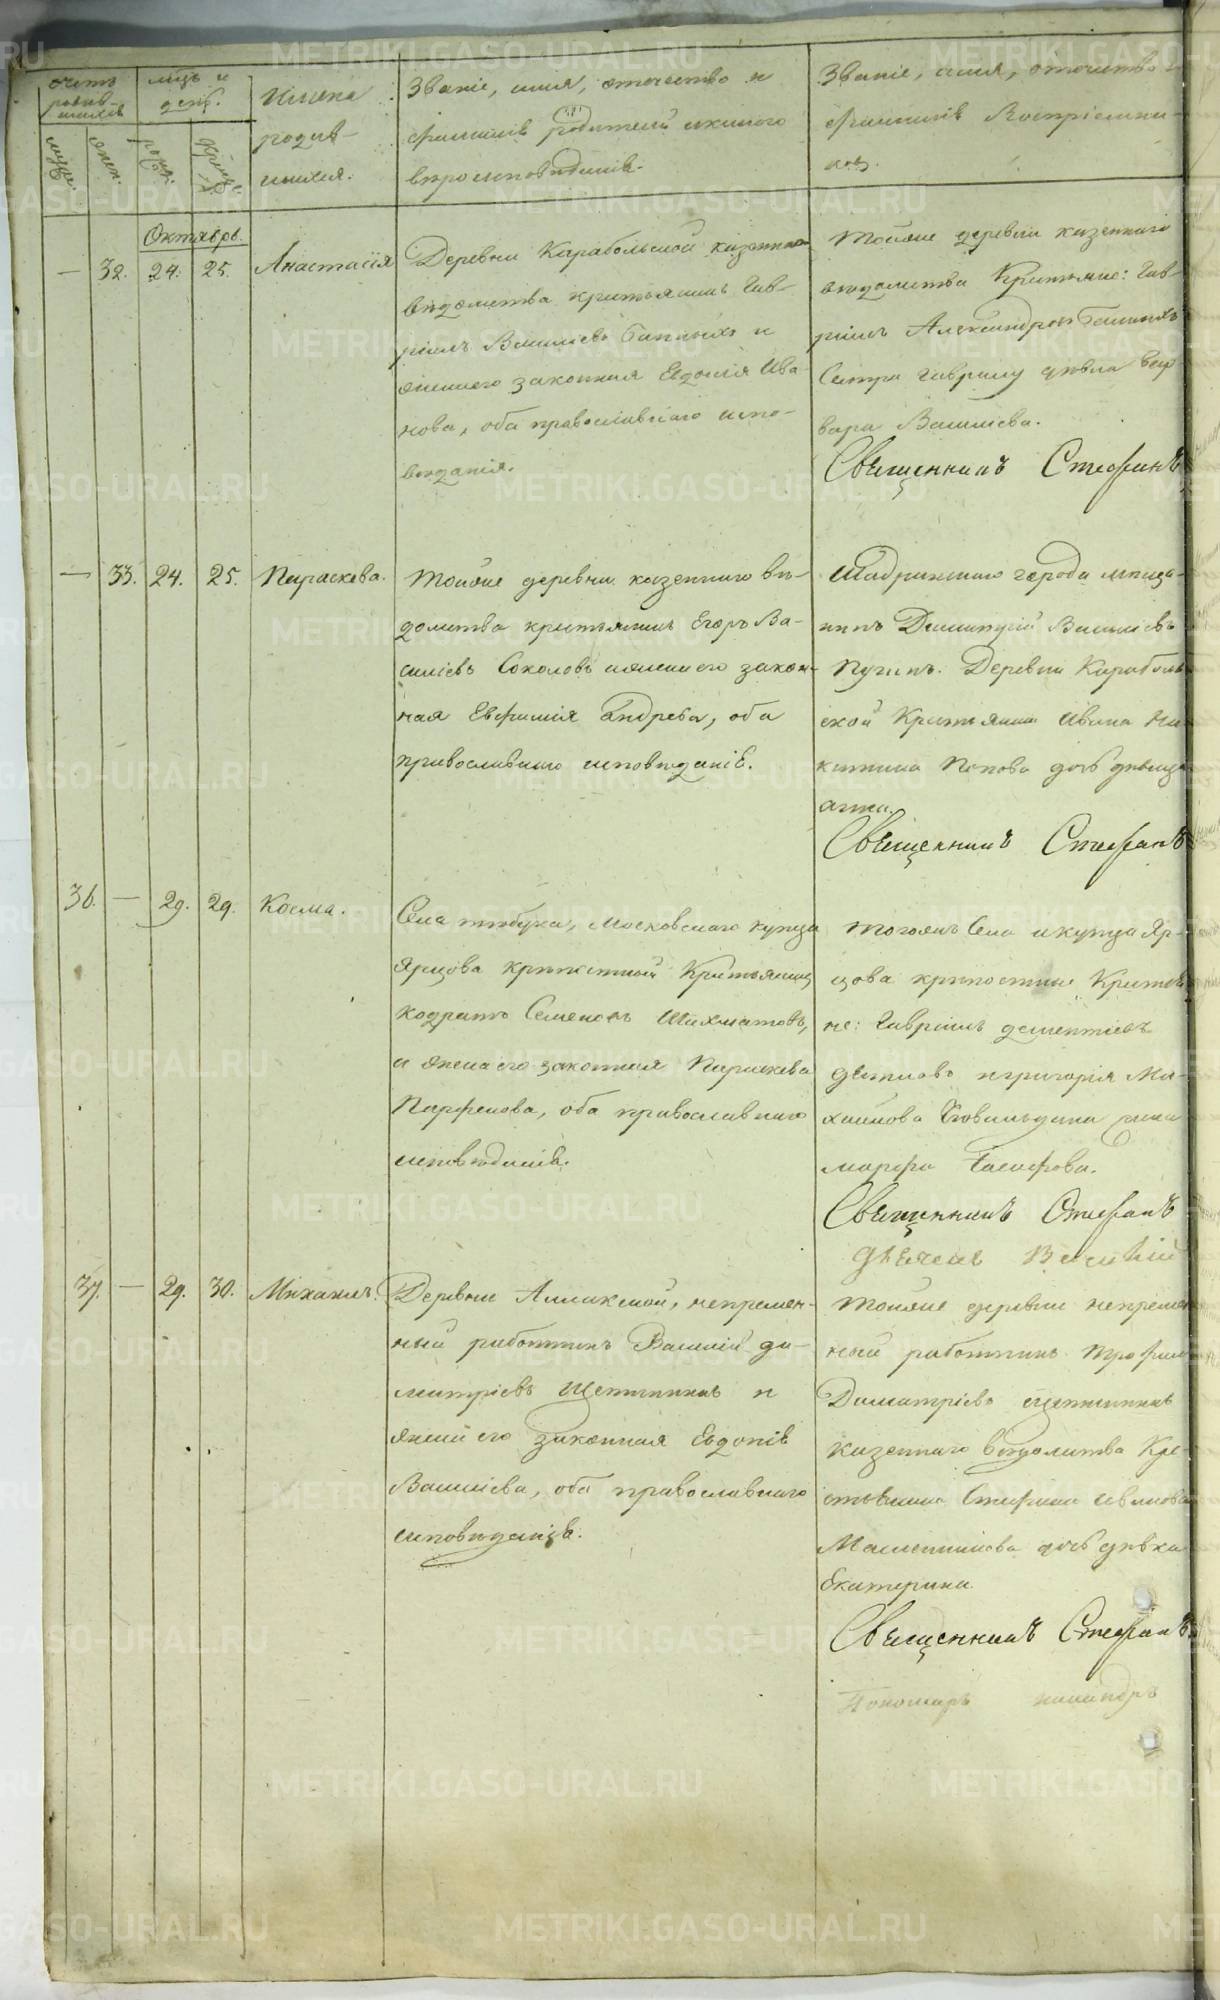 Счетъ родив-шихся
мѣсяцъ и день.
Имена родив-шихся.
Званіе, имя, отчество и
фамилія родителей и какого
вѣроисповѣданія.
Званіе, имя, отчество и
фамилія Воспріемни-
ковъ.
муж.
жен.
рожд.
крещ.
Октябрь.
— 32. 24. 25. Анастасія
Деревни Карабольской казеннаго
вѣдомства крестьянинъ Гав-
ріилъ Васильевъ и
жена его законная Евдокія Ива-
нова, оба православнаго испо-
вѣданія.
Тойже деревни казеннаго
вѣдомства Крестьяне: Гав-
ріилъ Александровъ
Сестра Гаврилу дѣвка Вар-
вара Васильева.
Священникъ Стефанъ
— 33. 24. 25. Параскева.
Тойже деревни казеннаго вѣ-
домства крестьянинъ Егоръ Ва-
сильевъ Соколовъ и жена его закон-
ная Евфимія Андреева, оба
православнаго исповѣданія.
Шадринскаго города мѣща-
нинъ Димитрій Васильевъ
Пугинъ. Деревни Караболь-
ской Крестьянина Ивана Ни-
китина Попова дочь дѣвица
Священникъ Стефанъ
36. — 29. 29. Косма.
Села Тюбука, Московскаго купца
Ярцова крѣпостный Крестьянинъ
Кодратъ Семеновъ Шахматовъ,
и жена его законная Параскева
Парфенова, оба православнаго
исповѣданія.
Тогоже Села и купца Яр-
цова крѣпостные Крестья-
не: Гавріилъ Дементіевъ
и Григорія Ми-
хаилова жена
Марфа
Священникъ Стефанъ
Дьячекъ Василій
37. — 29. 30. Михаилъ.
Деревни Аллакской, непремен-
ный работникъ Василій Ди-
митріевъ Щепткинъ и
жена его законная Евдокія
Васильева, оба православнаго
исповѣданія.
Тойже деревни непремен-
ный работникъ Трофимъ
Димитріевъ Щепткинъ
казеннаго вѣдомства Кре-
стьянина Стефана Иванова
Масленникова дочь дѣвка
Екатерина.
Священникъ Стефанъ
Пономарь